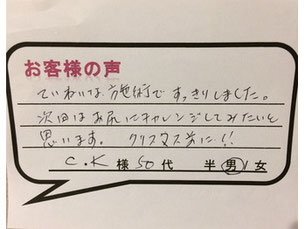 お客様の声
ていねいな施術ですっきりしました。
次回はお尻にチャレンジしてみたいと
思います。 クリスマス前に!!
C.K 様 50代 半 男/女